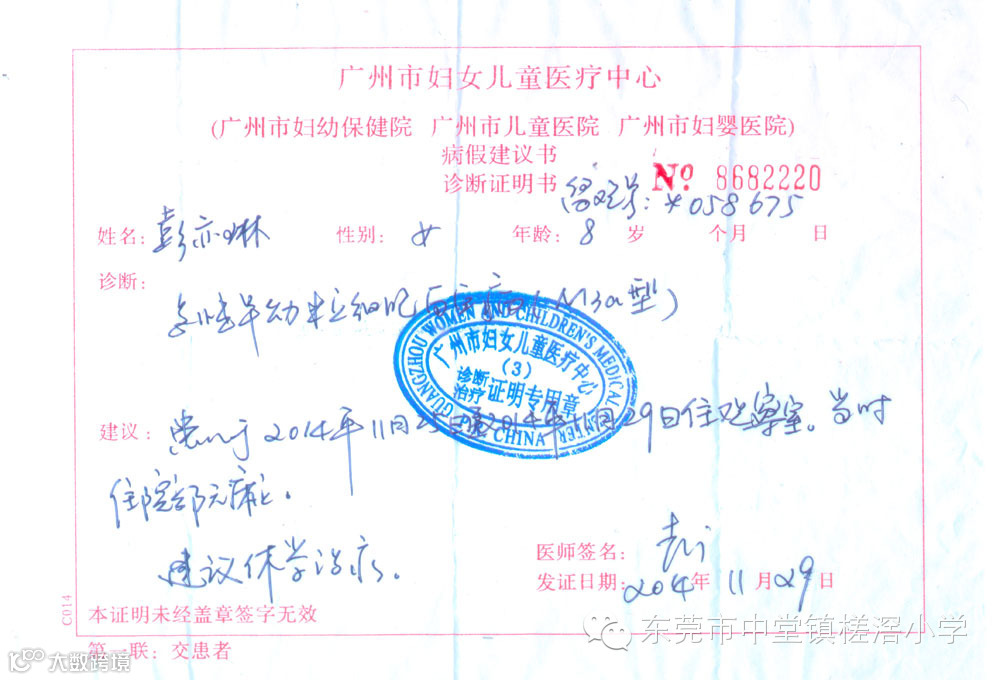 广州市妇女儿童医疗中心
(广州市妇幼保健院 广州市儿童医院 广州市妇婴医院)
病假建议书
诊断证明书 No 8682220
留观号: 058675
姓名: 彭亦琳 性别: 女 年龄: 8 岁 个月 日
诊断:
急性早幼粒细胞白血病(M3a型)
GUANGZHOU WOMEN AND CHILDREN'S MEDICAL CENTER
广州市妇女儿童医疗中心
(3)
诊断 治疗 证明专用章
CHINA
建议: 患儿于2014年11月25日至2014年11月29日住观察室。当时
住院部无床位。
建议休学治疗。
医师签名:
发证日期: 2014年 11月29日
C014
本证明未经盖章签字无效
第一联: 交患者
东莞市中堂镇槎滘小学
10100 大数跨境